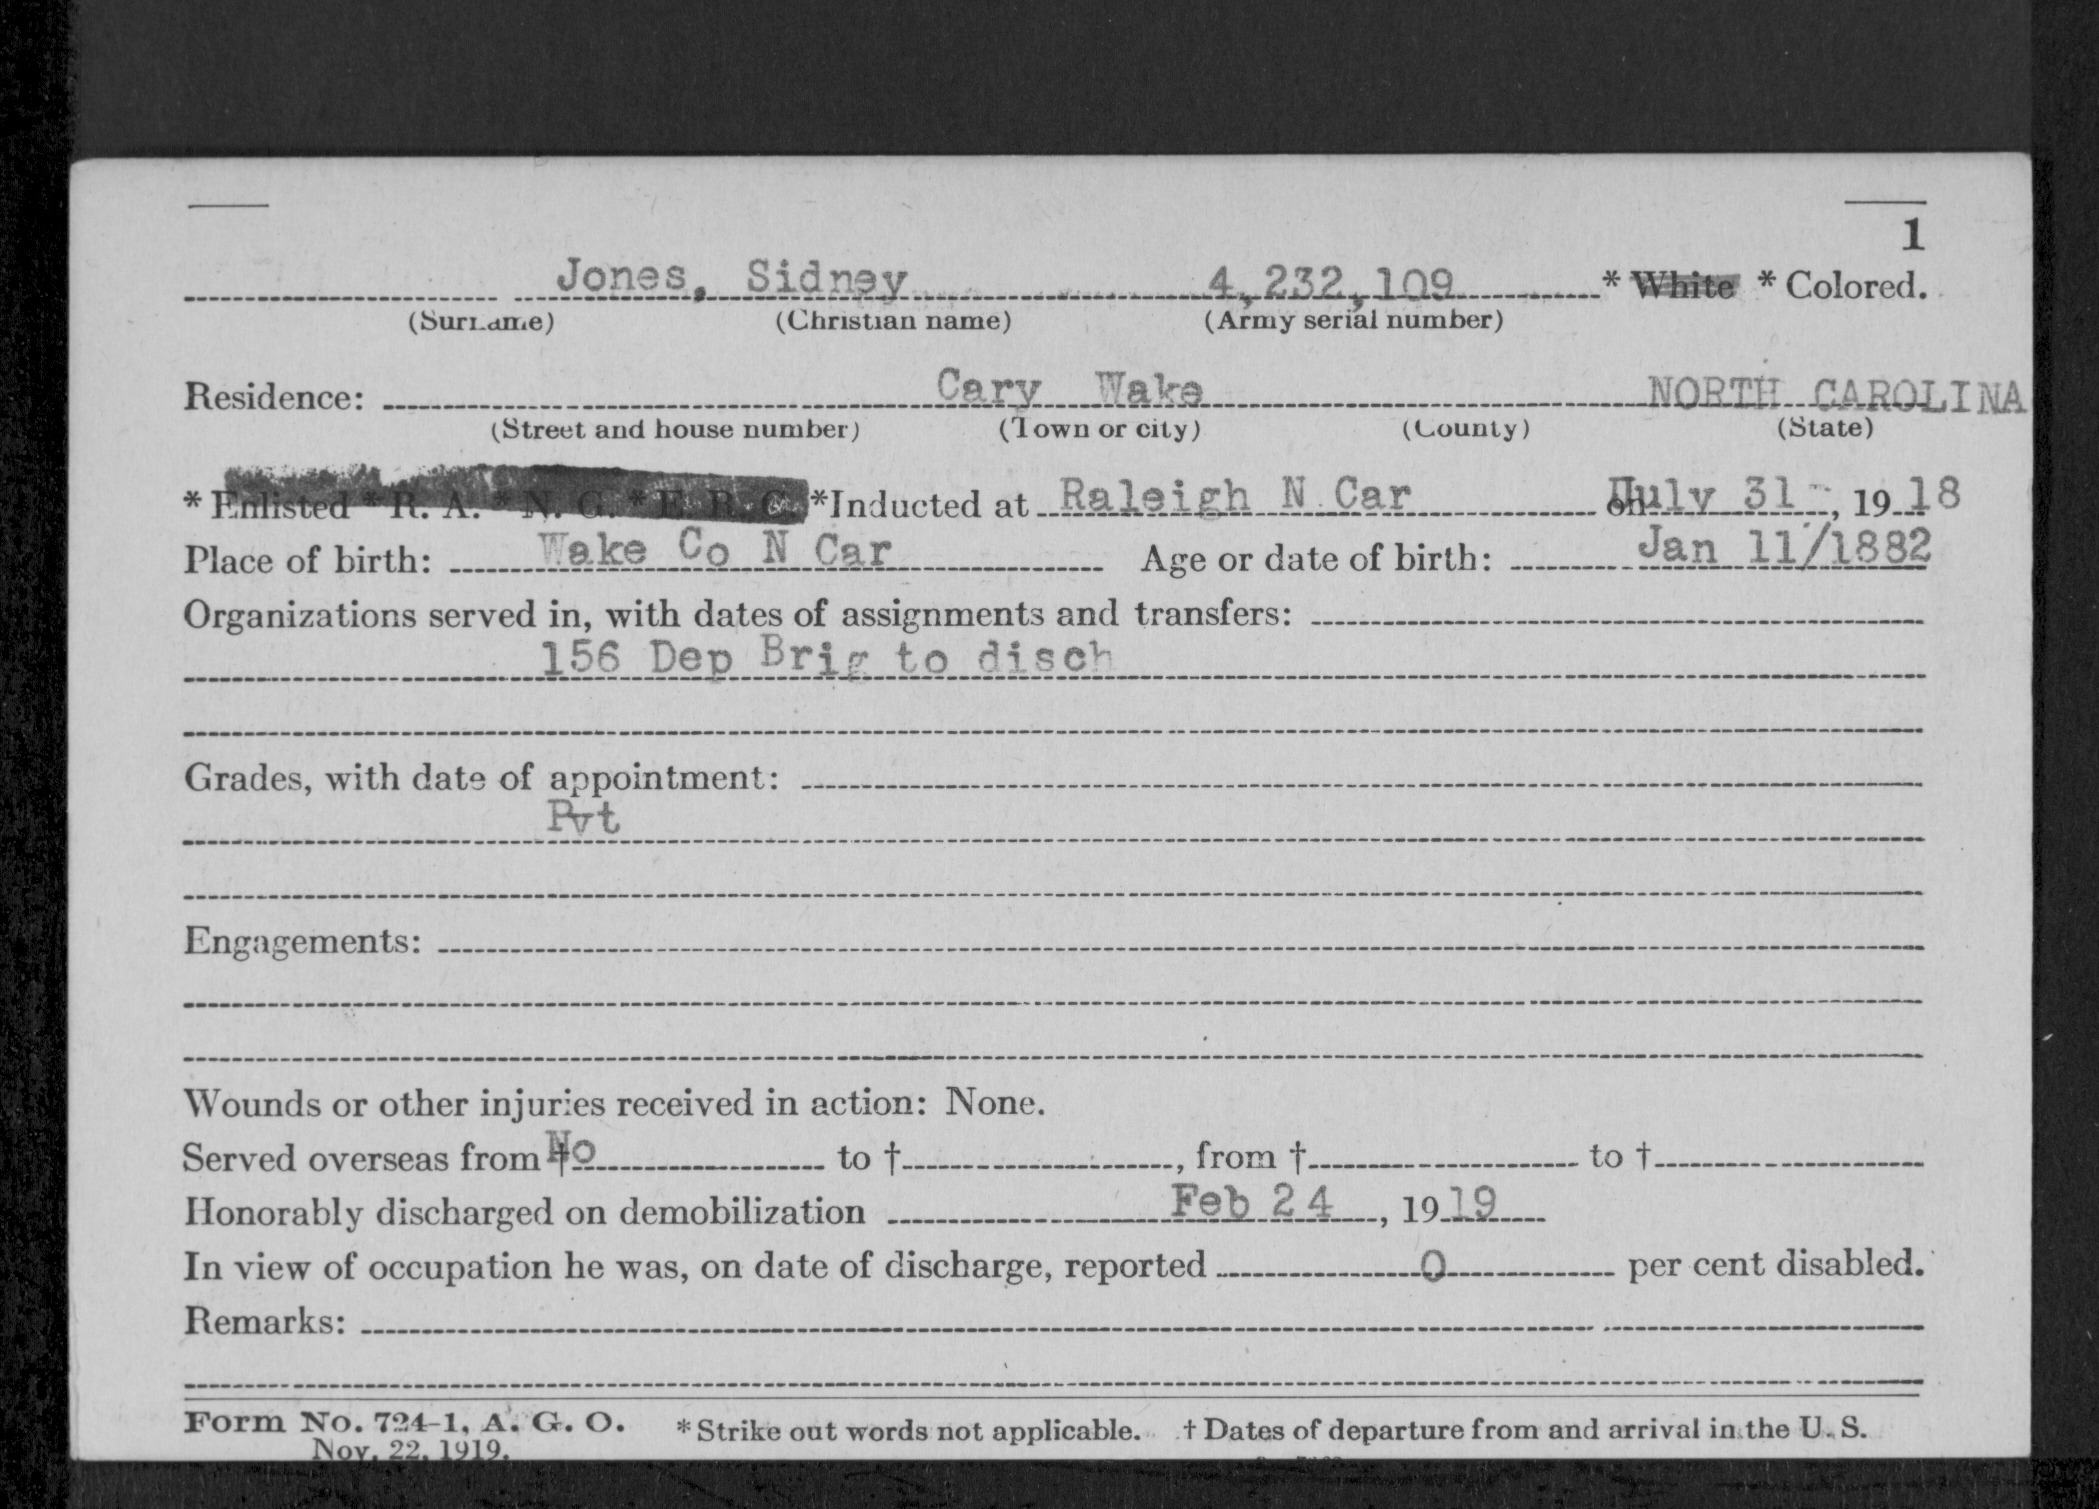 1
Jones, Sidney 4,232,109 * White * Colored.
(Surname) (Christian name) (Army serial number)
Residence: Cary Wake NORTH CAROLINA
(Street and house number) (Town or city) (County) (State)
* Enlisted * R. A. * N. G. * E. R. C. *Inducted at Raleigh N Car on July 31-, 19 18
Place of birth: Wake Co N Car Age or date of birth: Jan 11/1882
Organizations served in, with dates of assignments and transfers:
156 Dep Brig to disch
Grades, with date of appointment:
Pvt
Engagements:
Wounds or other injuries received in action: None.
Served overseas from † No to †, from † to †
Honorably discharged on demobilization Feb 24, 19 19
In view of occupation he was, on date of discharge, reported 0 per cent disabled.
Remarks:
Form No. 724-1, A. G. O. * Strike out words not applicable. † Dates of departure from and arrival in the U. S.
Nov. 22, 1919.